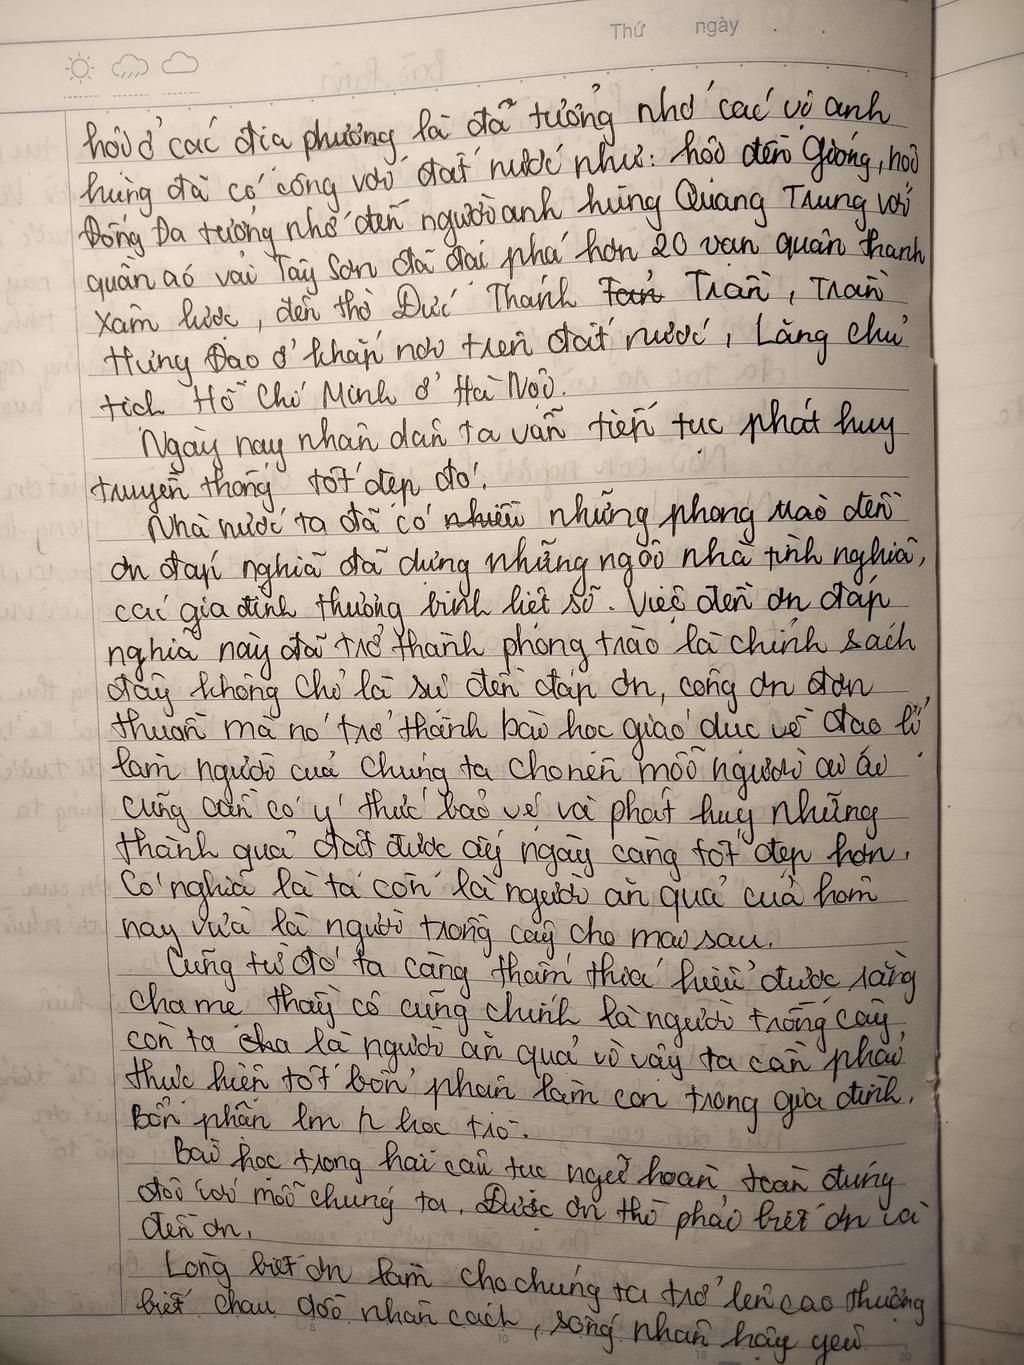 Thứ ngày
hội ở các địa phương là để tưởng nhớ các vị anh
hùng đã có công với đất nước như: hội đền Gióng, hội
Đống Đa tưởng nhớ đến người anh hùng Quang Trung với
quần áo vải Tây Sơn đã đại phá hơn 20 vạn quân thanh
xâm lược, đền thờ Đức Thánh Trần, Trần
Hưng Đạo ở khắp nơi trên đất nước, Lăng chủ
tịch Hồ Chí Minh ở Hà Nội.
Ngày nay nhân dân ta vẫn tiếp tục phát huy
truyền thống tốt đẹp đó.
Nhà nước ta đã có những phong trào đền
ơn đáp nghĩa đã dựng những ngôi nhà tình nghĩa,
các gia đình thương binh liệt sĩ. Việc đền ơn đáp
nghĩa này đã trở thành phong trào là chính sách
đây không chỉ là sự đền đáp ơn, công ơn đơn
thuần mà nó trở thành bài học giáo dục về đạo lí
làm người của chúng ta cho nên mỗi người ai ai
cũng cần có ý thức bảo vệ và phát huy những
thành quả đạt được ấy ngày càng tốt đẹp hơn.
Có nghĩa là ta còn là người ăn quả của hôm
nay vừa là người trồng cây cho mai sau.
Cũng từ đó ta càng thấm thía hiểu được rằng
cha mẹ thầy cô cũng chính là người trồng cây
còn ta là người ăn quả vì vậy ta cần phải
thực hiện tốt bổn phận làm con trong gia đình.
Bổn phận lm học trò.
Bài học trong hai câu tục ngữ hoàn toàn đúng
đối với mỗi chúng ta. Được ơn thì phải biết ơn và
đền ơn.
Lòng biết ơn làm cho chúng ta trở lên cao thượng
biết chau dồi nhân cách, sống nhân hậy yêu